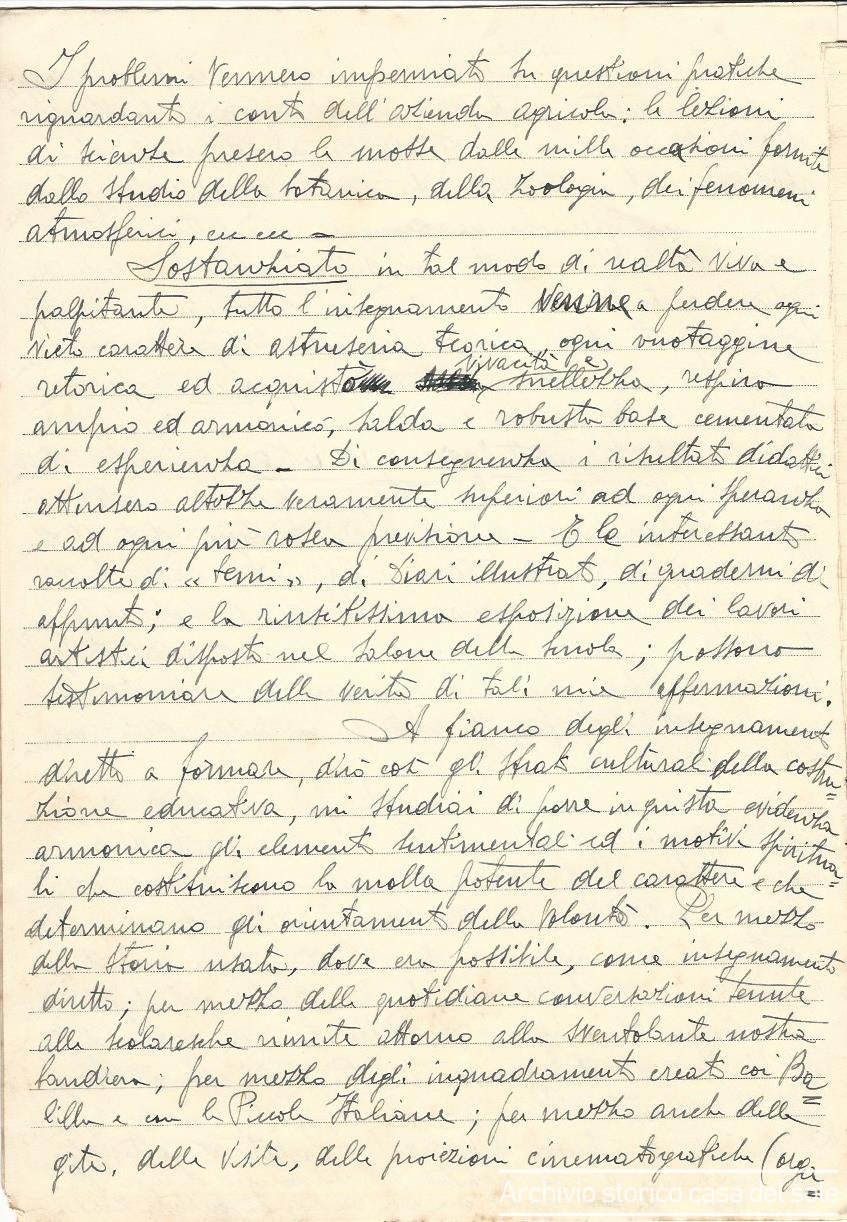 I problemi vennero imperniati su questioni pratiche
riguardanti i conti dell'azienda agricola; le lezioni
di scienze presero le mosse dalle mille occasioni fornite
dallo studio della botanica, della zoologia, dei fenomeni
atmosferici, ecc ecc –
Sostanziato in tal modo di realtà viva e
palpitante, tutto l'insegnamento venne a perdere ogni
vieto carattere di astruseria teorica, ogni vuotaggine
retorica ed acquistò vivacità e snellezza, respiro
ampio ed armonico, salda e robusta base cementata
di esperienza – Di conseguenza i risultati didattici
attinsero altezze veramente superiori ad ogni speranza
e ad ogni più rosea previsione – E le interessanti
raccolte di «temi», di Diari illustrati, di quaderni di
appunti; e la riuscitissima esposizione dei lavori
artistici disposti nel salone della scuola; possono
testimoniare della verità di tali mie affermazioni.
A fianco degli insegnamenti
diretti a formare, dirò così gli strati culturali della costru=
zione educativa, mi studiai di porre in giusta evidenza
armonica gli elementi sentimentali ed i motivi spiritua=
li che costituiscono la molla potente del carattere e che
determinano gli orientamenti della volontà. Per mezzo
della storia usata, dove era possibile, come insegnamento
diretto; per mezzo delle quotidiane conversazioni tenute
alle scolaresche riunite attorno alla sventolante nostra
bandiera; per mezzo degli inquadramenti creati coi Ba=
lilla e con le Piccole Italiane; per mezzo anche delle
gite, delle visite, delle proiezioni cinematografiche (orga=
Archivio storico casa del sole